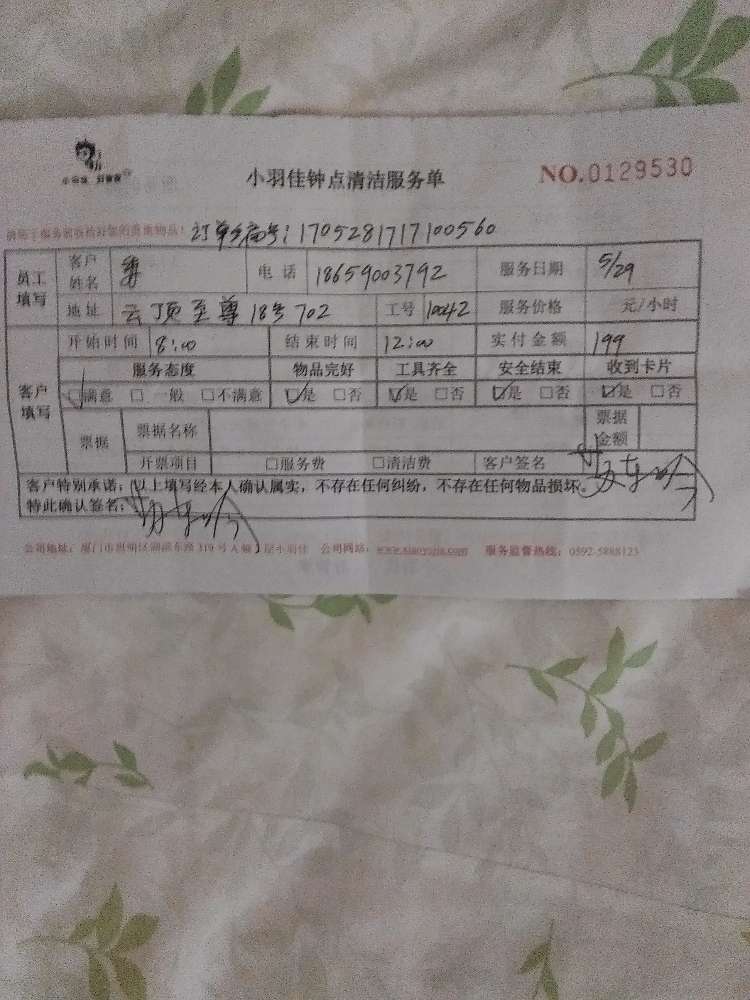 小羽佳钟点清洁服务单
NO.0129530
订单编号:1705281717100560
员工填写 客户姓名 电话 18659003792 服务日期 5/29
地址 云顶至尊18号702 工号 10042 服务价格 元/小时
客户填写 开始时间 8:00 结束时间 12:00 实付金额 199
服务态度 物品完好 工具齐全 安全结束 收到卡片
☑满意 □一般 □不满意 ☑是 □否 ☑是 □否 ☑是 □否 ☑是 □否
票据 票据名称 票据金额
开票项目 □服务费 □清洁费 客户签名
客户特别承诺:以上填写经本人确认属实,不存在任何纠纷,不存在任何物品损坏。
特此确认签名:
公司地址:厦门市思明区湖滨东路319号A幢 公司网站: 服务监督热线:0592-5888123